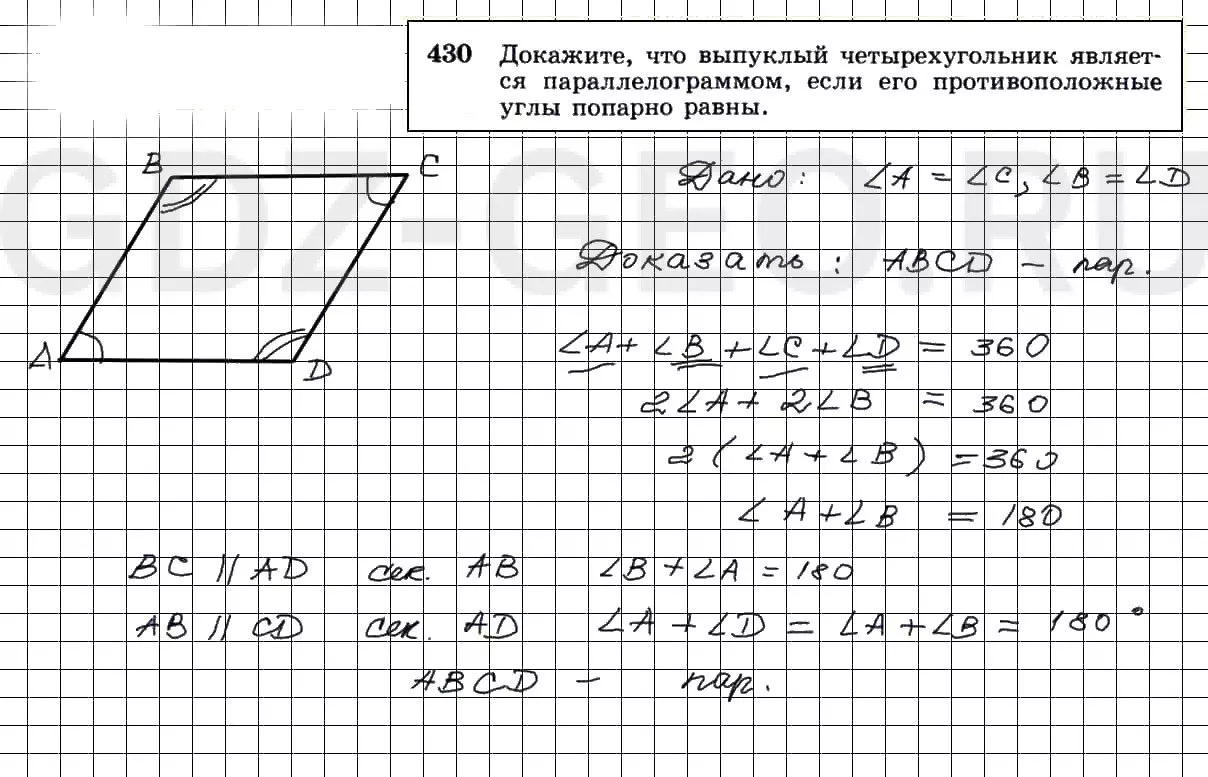 430 Докажите, что выпуклый четырехугольник являет-
ся параллелограммом, если его противоположные
углы попарно равны.
GDZ-GEO.RU
B
C
A
D
Дано: ∠A = ∠C, ∠B = ∠D
Доказать: ABCD - пар.
∠A + ∠B + ∠C + ∠D = 360
2∠A + 2∠B = 360
2(∠A + ∠B) = 360
∠A + ∠B = 180
BC || AD сек. AB ∠B + ∠A = 180
AB || CD сек. AD ∠A + ∠D = ∠A + ∠B = 180°
ABCD - пар.